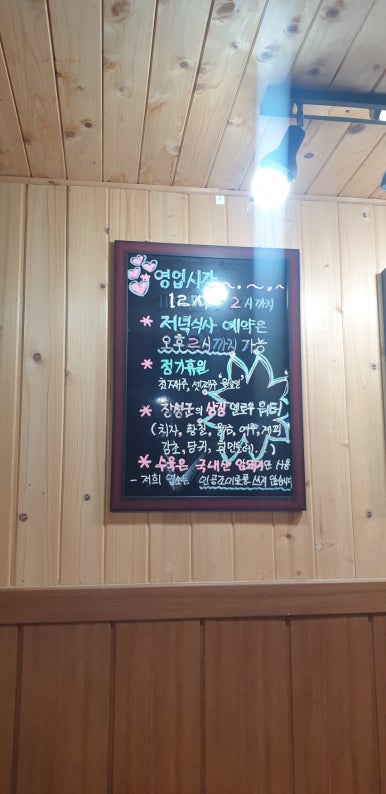 영업시간
12시 ~ 2시까지
* 저녁식사 예약은
오후 2시까지 가능
* 정기휴일
첫째주, 셋째주 월요일
* 장성군의 상징 옐로우 워터
(치자, 황칠, 울금, 여주, 계피
감초, 당귀, 민들레..)
* 수육은 국내산 암퇘지만 사용
- 저희 업소는 인공조미료를 쓰지 않습니다